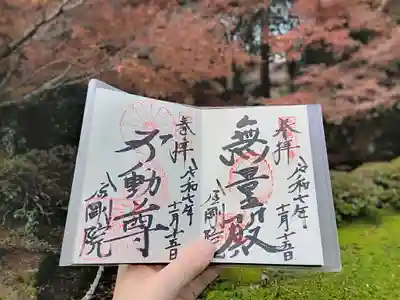 奉拝
無量殿
令和七年
十月十五日
金剛院
奉拝
不動尊
令和七年
十月十五日
金剛院